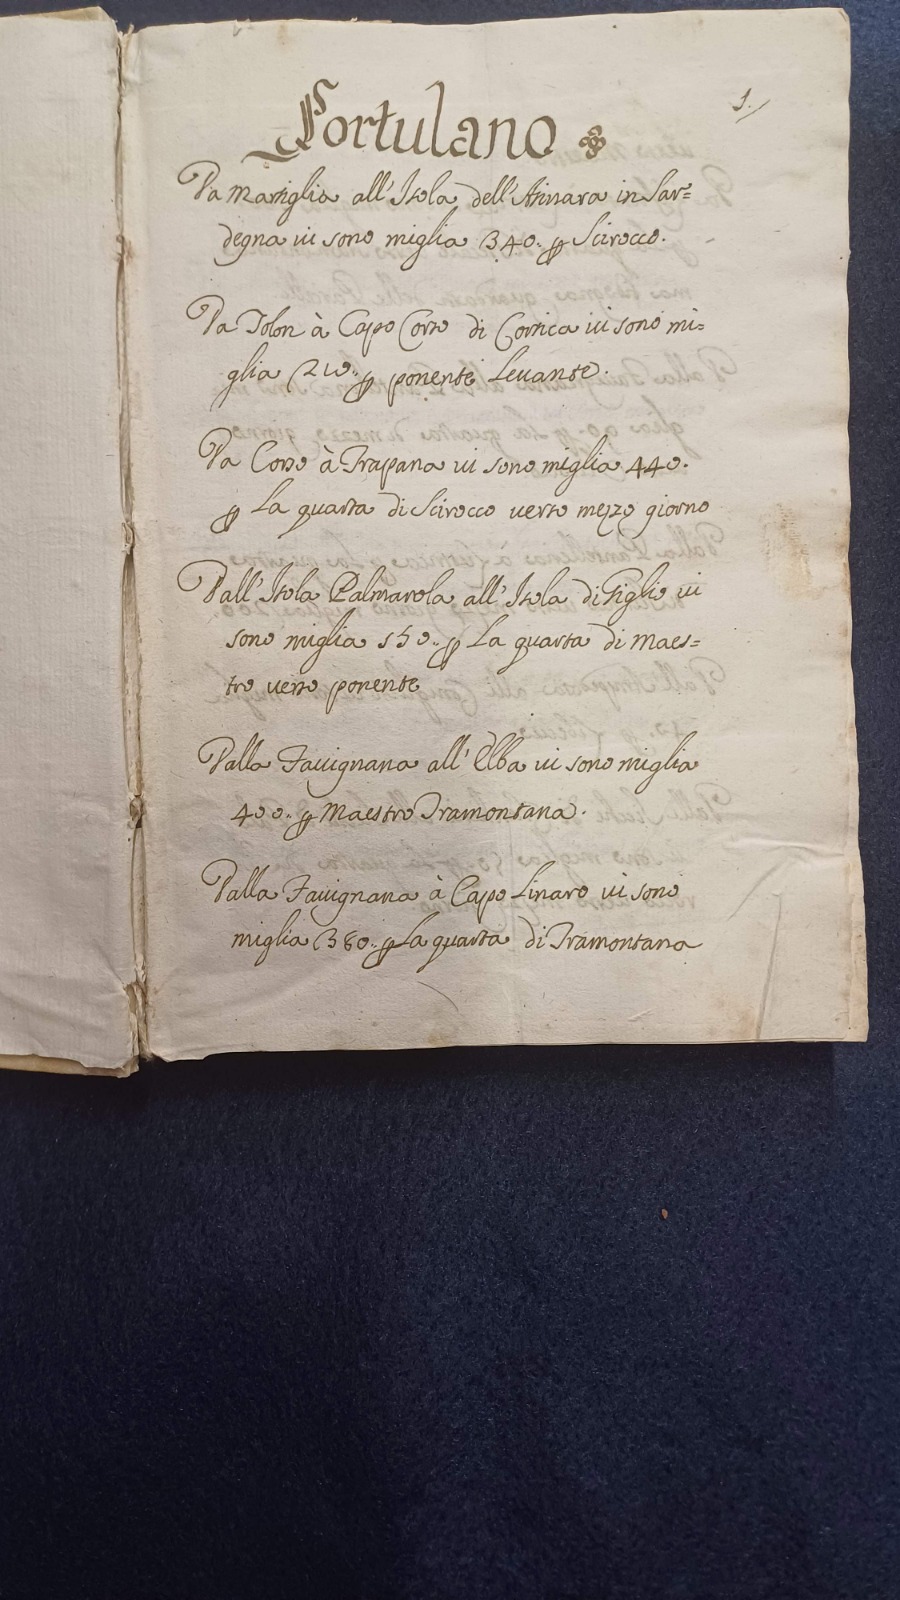 1.
Portulano
Da Marsiglia all'Isola dell'Asinara in Sar=
degna vi sono miglia 340. p Scirocco.
Da Tolon à Capo Corso di Corsica vi sono mi=
glia 210. p ponente Levante.
Da Corso à Trapana vi sono miglia 440.
p La quarta di Scirocco verso mezzo giorno
Dall'Isola Palmarola all'Isola di Giglio vi
sono miglia 150. p La quarta di Maes=
tro verso ponente
Dalla Favignana all'Elba vi sono miglia
400. p Maestro Tramontana.
Dalla Favignana à Capo Linaro vi sono
miglia 380. p La quarta di Tramontana